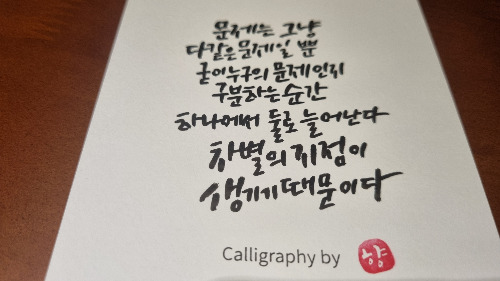 문제는 그냥
다같은 문제일 뿐
굳이 누구의 문제인지
구분하는 순간
하나에서 둘로 늘어난다
차별의 지점이
생기기 때문이다
Calligraphy by 향